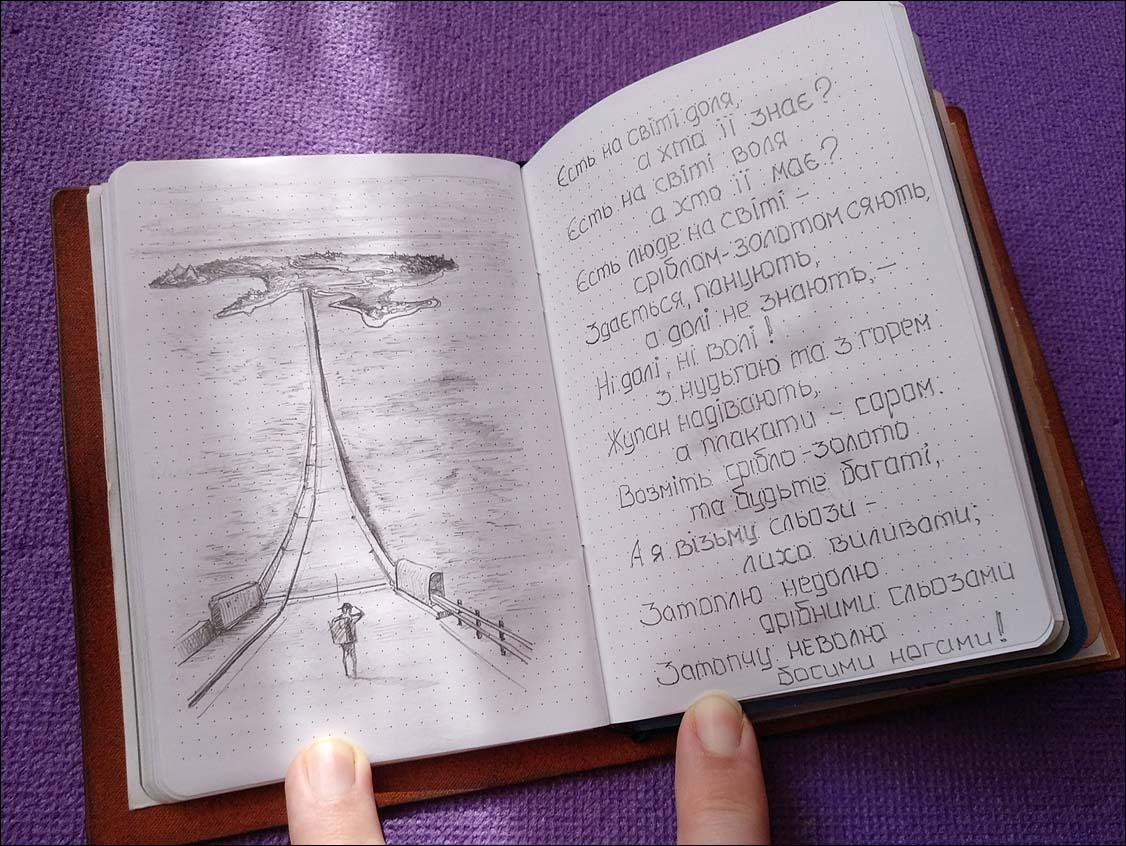 Єсть на світі доля,
а хта її знає?
Єсть на світі воля
а хто її має?
Єсть люде на світі –
сріблом-золотом сяють,
Здається, панують,
а долі не знають, –
Ні долі, ні волі!
З нудьгою та з горем
Жупан надівають,
а плакати – сором.
Возміть срібло-золото
та будьте багаті,
А я візьму сльози –
лихо виливати;
Затоплю недолю
дрібними сльозами
Затопчу неволю
босими ногами!